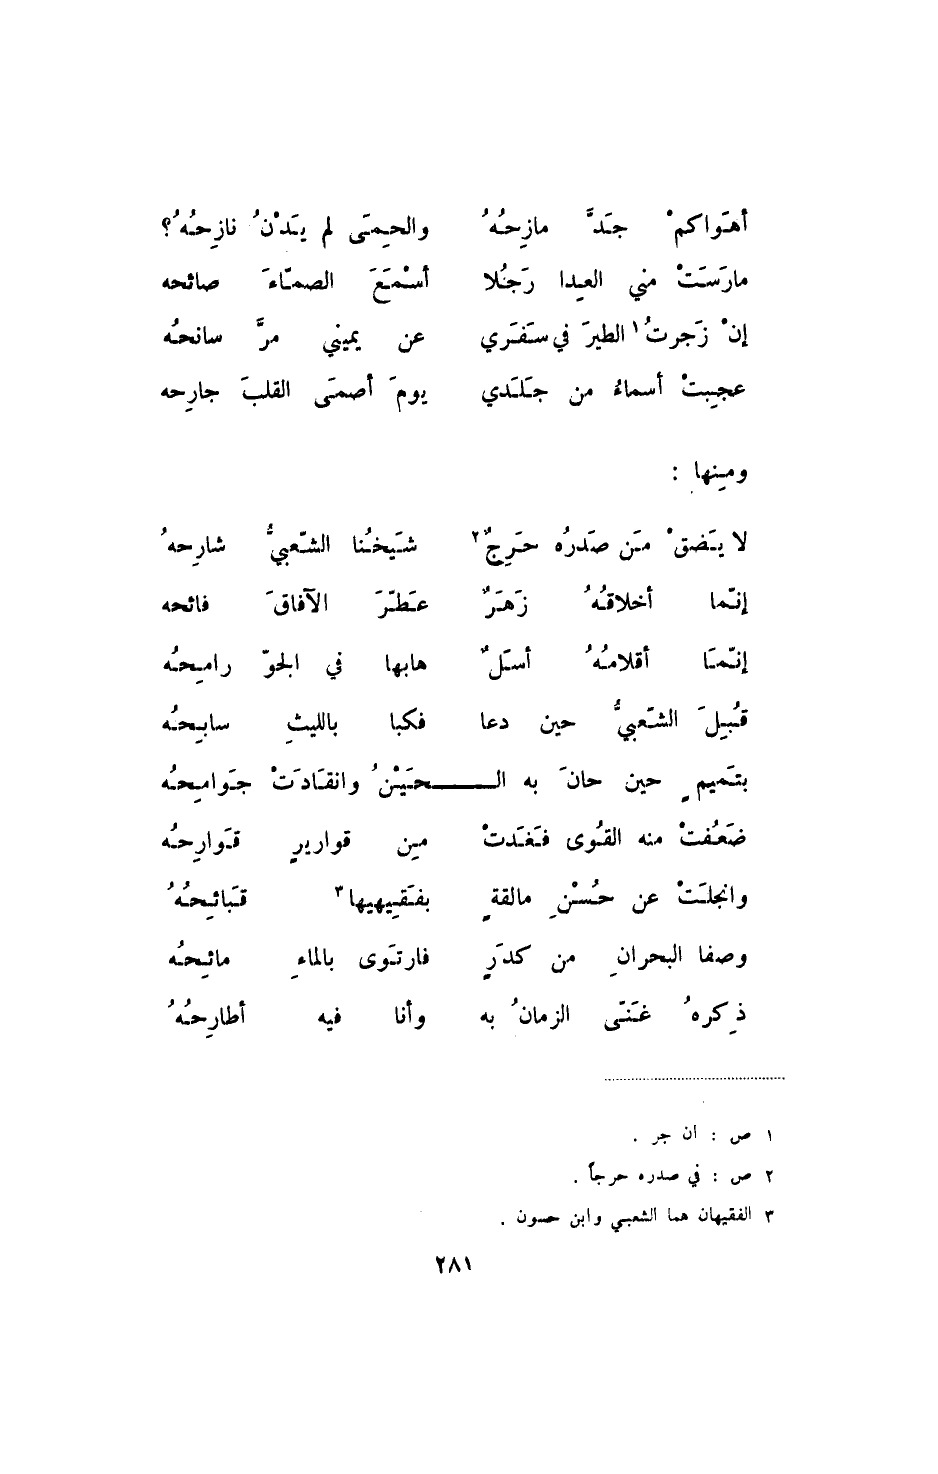 أهَواكمْ جَدَّ مازِحُهُ والحِمَى لم يَدْنُ نازِحُهُ؟
مارَسَتْ مني العِدا رَجُلا أسْمَعَ الصمّاءَ صائحه
إنْ زَجرتُ١ الطيرَ في سَفَري عن يميني مرَّ سانحُه
عجِبتْ أسماءُ من جَلَدي يومَ أصمَى القلبَ جارِحه
ومِنها :
لا يَضقْ مَن صَدرُه حَرِجٌ٢ شَيخُنا الشّعبيُّ شارِحهُ
إنّما أخلاقُهُ زَهَرٌ عَطّرَ الآفاقَ فائحه
إنّمَا أقلامُهُ أسَلٌ هابها في الجوّ رامِحُه
قُبِلَ الشّعبيُّ حين دعا فكبا بالليثِ سابِحُه
بتَميمٍ حين حانَ به الـحَيْنُ وانقَادَتْ جَوامِحُه
ضَعُفتْ منه القُوى فغَدَتْ مِن قواريرٍ قَوارِحُه
وانجلَتْ عن حُسْنِ مالقةٍ بفَقِيهيها٣ قَبائِحُهُ
وصفا البحرانِ من كدَرٍ فارتَوى بالماءِ مائِحُه
ذِكرهُ غَنّى الزمانُ به وأنا فيه أطارِحُهُ
١ ص : ان جر .
٢ ص : في صدره حرجاً .
٣ الفقيهان هما الشعبي وابن حسون .
٢٨١